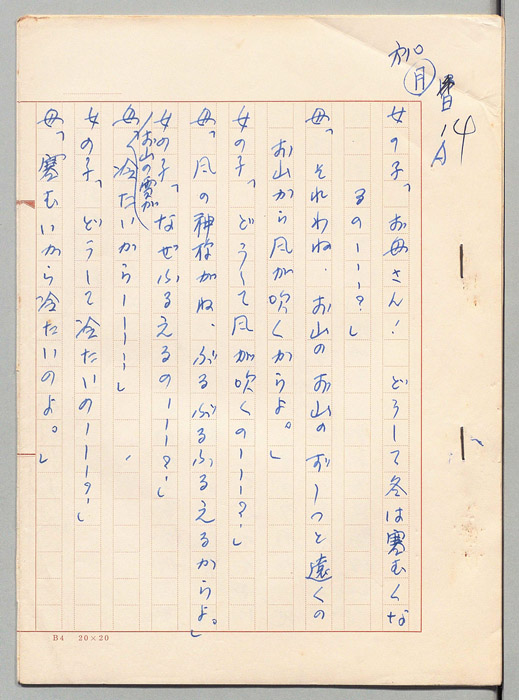 月
14
女の子「お母さん! どうして冬は寒むくな
るのーーー?」
母「それわね、お山のお山のずーっと遠くの
お山から風が吹くからよ。」
女の子「どうして風が吹くのーーー?」
母「風の神様がね、ぶるぶるふるえるからよ。」
女の子「なぜふるえるのーーー?」
母「お山の雪が冷たいからーーーー」
女の子「どうして冷たいのーーー?」
母「寒むいから冷たいのよ。」
B4 20×20